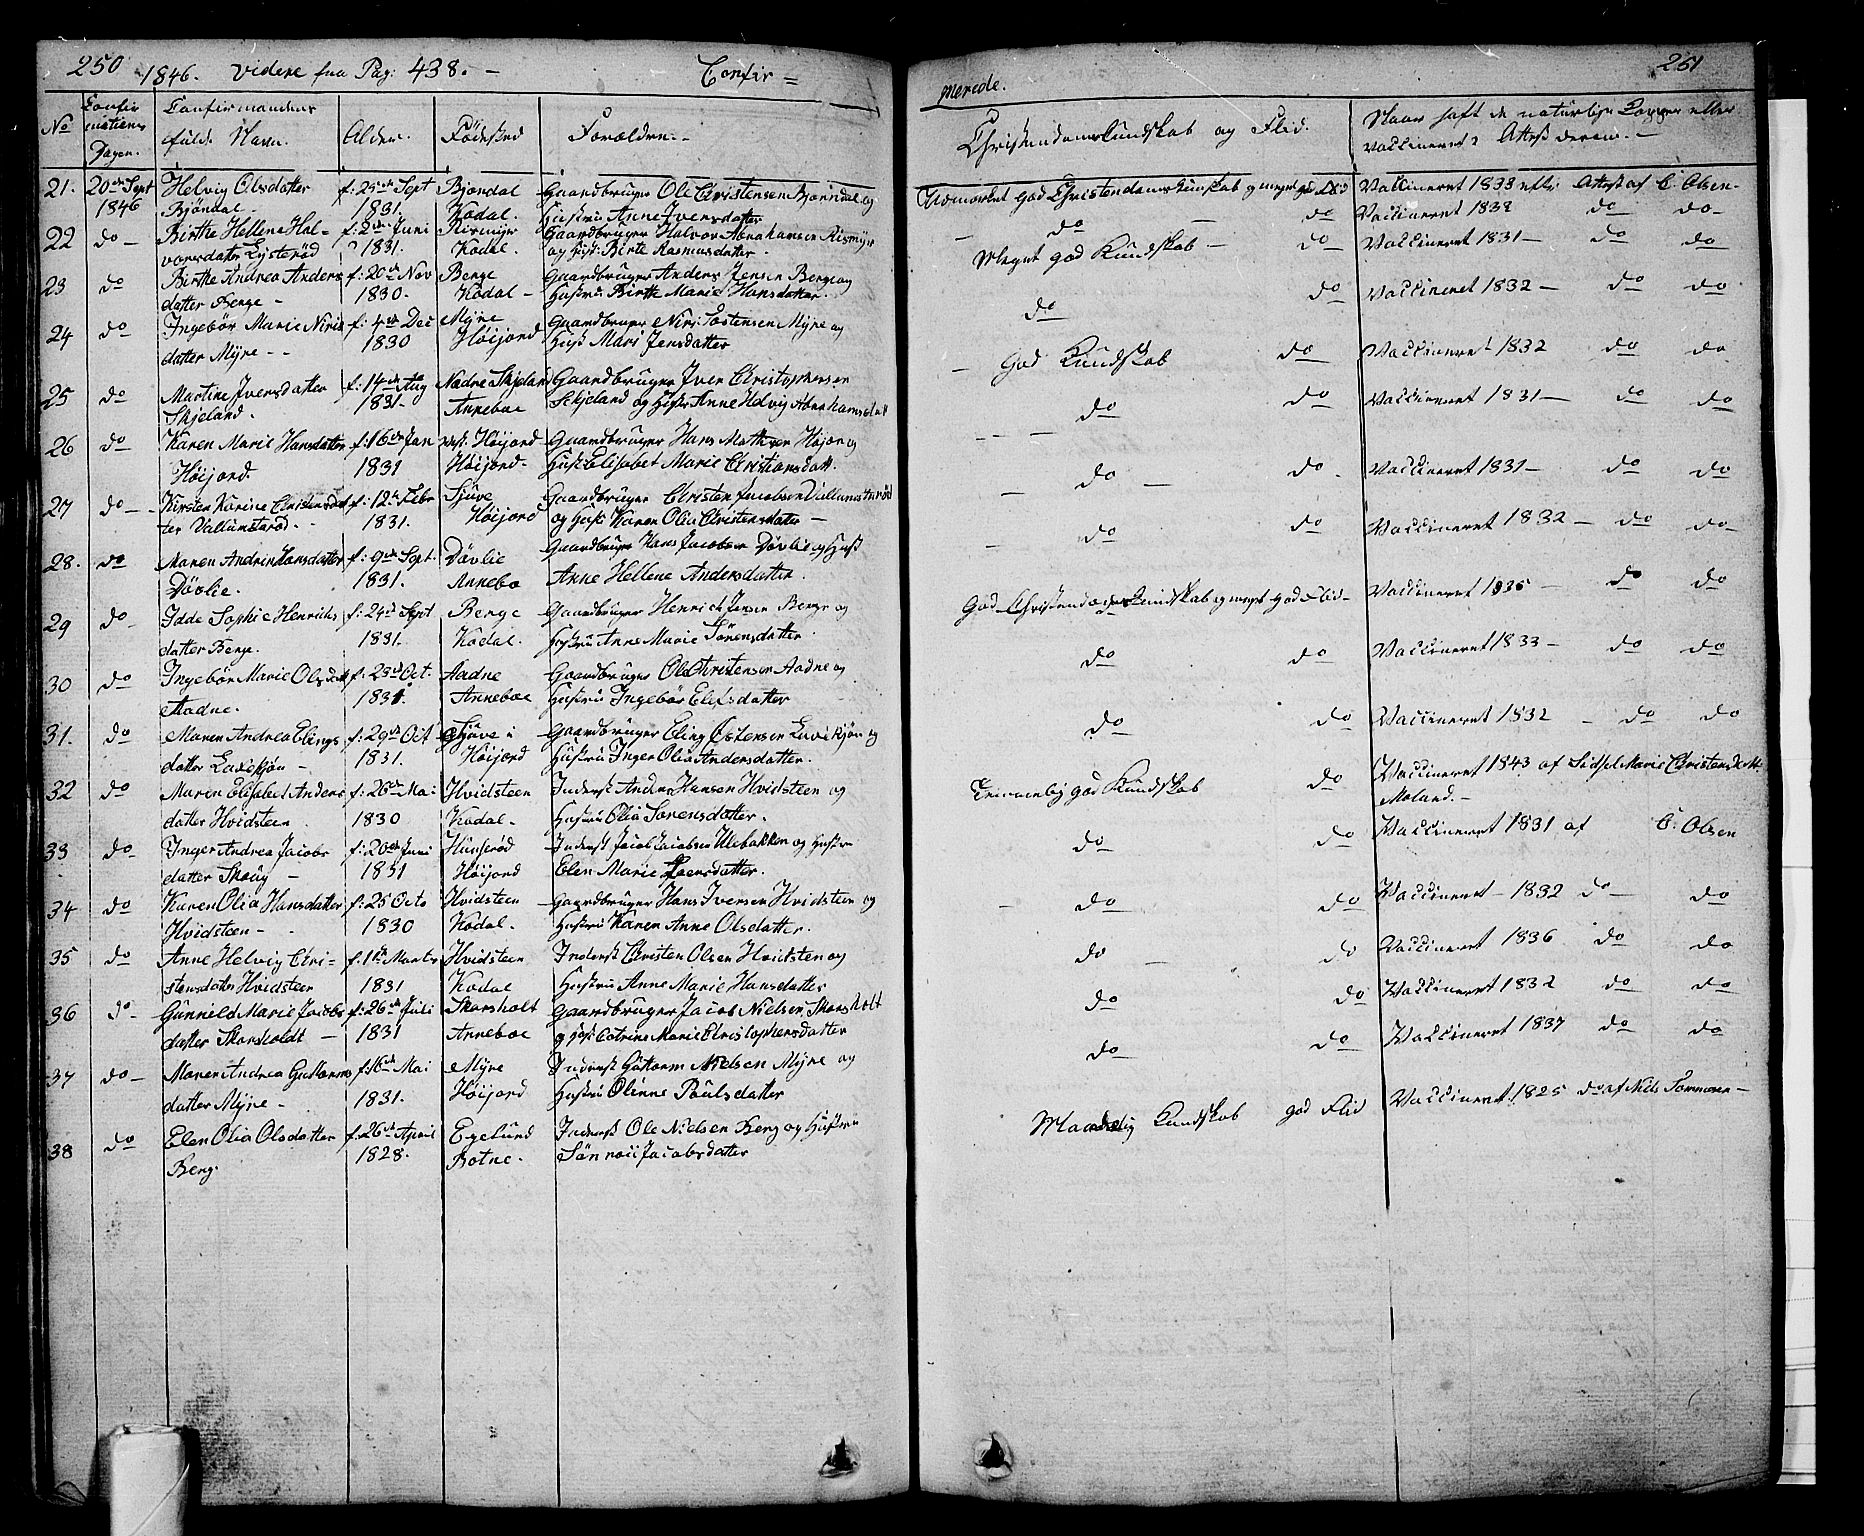 250 1846. Videre fra Pag: 438. - Confir =
No Confirmations Dagen. Confirmandens fulde Navn. Alder. Födested Forældre. -
21. 20de Sept 1846 Helvig Olsdatter Bjöndal - f: 25de Sept 1831. Bjöndal Kodal. Gaardbruger Ole Christensen Bjöndal og Hustru Anne Iversdatter
22 do - Birthe Hellene Halvorsdatter Lysteröd f: 2den Juni 1831. Rismyr Kodal. Gaardbruger Halvor Abrahamsen Rismyr og Hust: Birte Rasmusdatter.
23 do Birthe Andrea Andersdatter Berge - f: 20de Nov 1830. Berge Kodal - Gaardbruger Anders Jensen Berge og Hustru Birthe Marie Hansdatter.
24 do Ingebör Marie Niris datter Myre - - f: 4de Dec 1830 Myre Höijord Gaardbruger Niri Tostensen Myre og Hust Mari Jensdatter
25 do Martine Iversdatter Skjeland. f: 14de Aug 1831. Nedre Skjeland Anneboe Gaardbruger Iver Christophersen Skjeland og Hustr Anne Helvig Abrahamsdat
26 do Karen Marie Hansdatter Höijord. f: 16de Jan 1831 Höijord Höijord. Gaardbruger Hans Höjor og Hust Elisabet Marie Christiansdatt.
27 do - - Kirsten Karine Christensdatter Vallumsröd. f: 12te Febr 1831. Sjuve Höijord Gaardbruger Christen Jacobsen og Hust Karen Olia Christensdatter -
28. do Maren Andrin Hansdatter Dövlie. f: 9de Sept. 1831. Dövlie Annebo Gaardbruger Hans Jacobsen Dövlie og Hust Anne Hellene Andersdatter.
29 do - Idde Sophie Henrichs datter Berge. f: 24de Sept 1831. Berge Kodal. Gaardbruger Henrich Jensen Berge og Hustru Anne Marie Sörensdatter.
30 do Ingebör Marie Olsdatt Aadne. f: 23de Oct. 1831. Aadne Anneboe Gaardbruger Ole Christensen Aadne og Hustru Ingebör Elefsdatter
31. do Maren Andrea Elings datter - f: 29de Oct 1831. Sjuve i Höijord Gaardbruger Eling Östensen og Hustru Inger Olia Andersdatter.
32 do Maren Elisabet Anders datter Hvidsteen f: 26de Mai 1830 Hvidsteen Kodal. Inderst Anders Hansen Hvidsteen og Hustru Olia Sörensdatter.
33 do Inger Andrea Jacobs datter Skoug - f: 20de Juni 1831 Hunsröd Höijord Inderst Jacob Jacobsen Ulebakken og Hustru Elen Marie datter.
34 do Karen Olia Hansdatter Hvidsteen - f: 25 Octo 1830 Hvidsteen Kodal. Gaardbruger Hans Iversen Hvidsteen og Hustru Karen Anne Olsdatter.
35 do Anne Helvig Christensdatter Hvidsteen f: 1ste Marts 1831 Hvidsteen Kodal Inderst Christen Olsen Hvidsten og Hustru Anne Marie Hansdatter
36 do - Gunnild Marie Jacobs datter Skarsholdt - f: 26de Juli 1831 Skarsholt Anneboe Gaardbruger Jacob Nielsen Skarsholt og Hust Catrine Marie Christophersdatter
37 do - Maren Andrea Guttorms datter Myre - f: 16de Mai 1831. Myre Höijord Inderst Guttorm Nielsen Myre og Hustru Olinne Poulsdatter
38 do Elen Olia Olsdatter Berg. f: 26de April 1828. Egelund Botne. Inderst Ole Nielsen Berg og Hustru Jacobsdatter
merede. 251
Christendomskundskab og Flid. Naar haft de naturlige Kopper eller vaccineret? Attest derom. -
Udmærket god Christendomskundskab og meget god Flid Vaccineret 1833 efter Attest af C. Olsen -
- do - do Vaccineret 1832 do do -
Meget god Kundskab - do Vaccineret 1831 - do do
do do Vaccineret 1832 - do do
- God Kundskab do Vaccineret 1832 do do
- - - do do Vaccineret 1831 - do do
- do - do - Vaccineret 1831 - do do
- do do Vaccineret 1832 - do do
God Christendomskundskab og meget god Flid - Vaccineret 1835 - do do
do do Vaccineret 1833 - do do
do do Vaccineret 1832 - do do
Temmelig god Kundskab do Vaccineret 1843 af Marie Christensdatt. Moland. -
do do Vaccineret 1831 af C. Olsen
- do do Vaccineret - 1832 do - do
do - do Vaccineret 1836 do do
do do Vaccineret 1832 do do
do do Vaccineret 1837 do do
Maadelig Kundskab god Flid Vaccineret 1825 do af Niels -